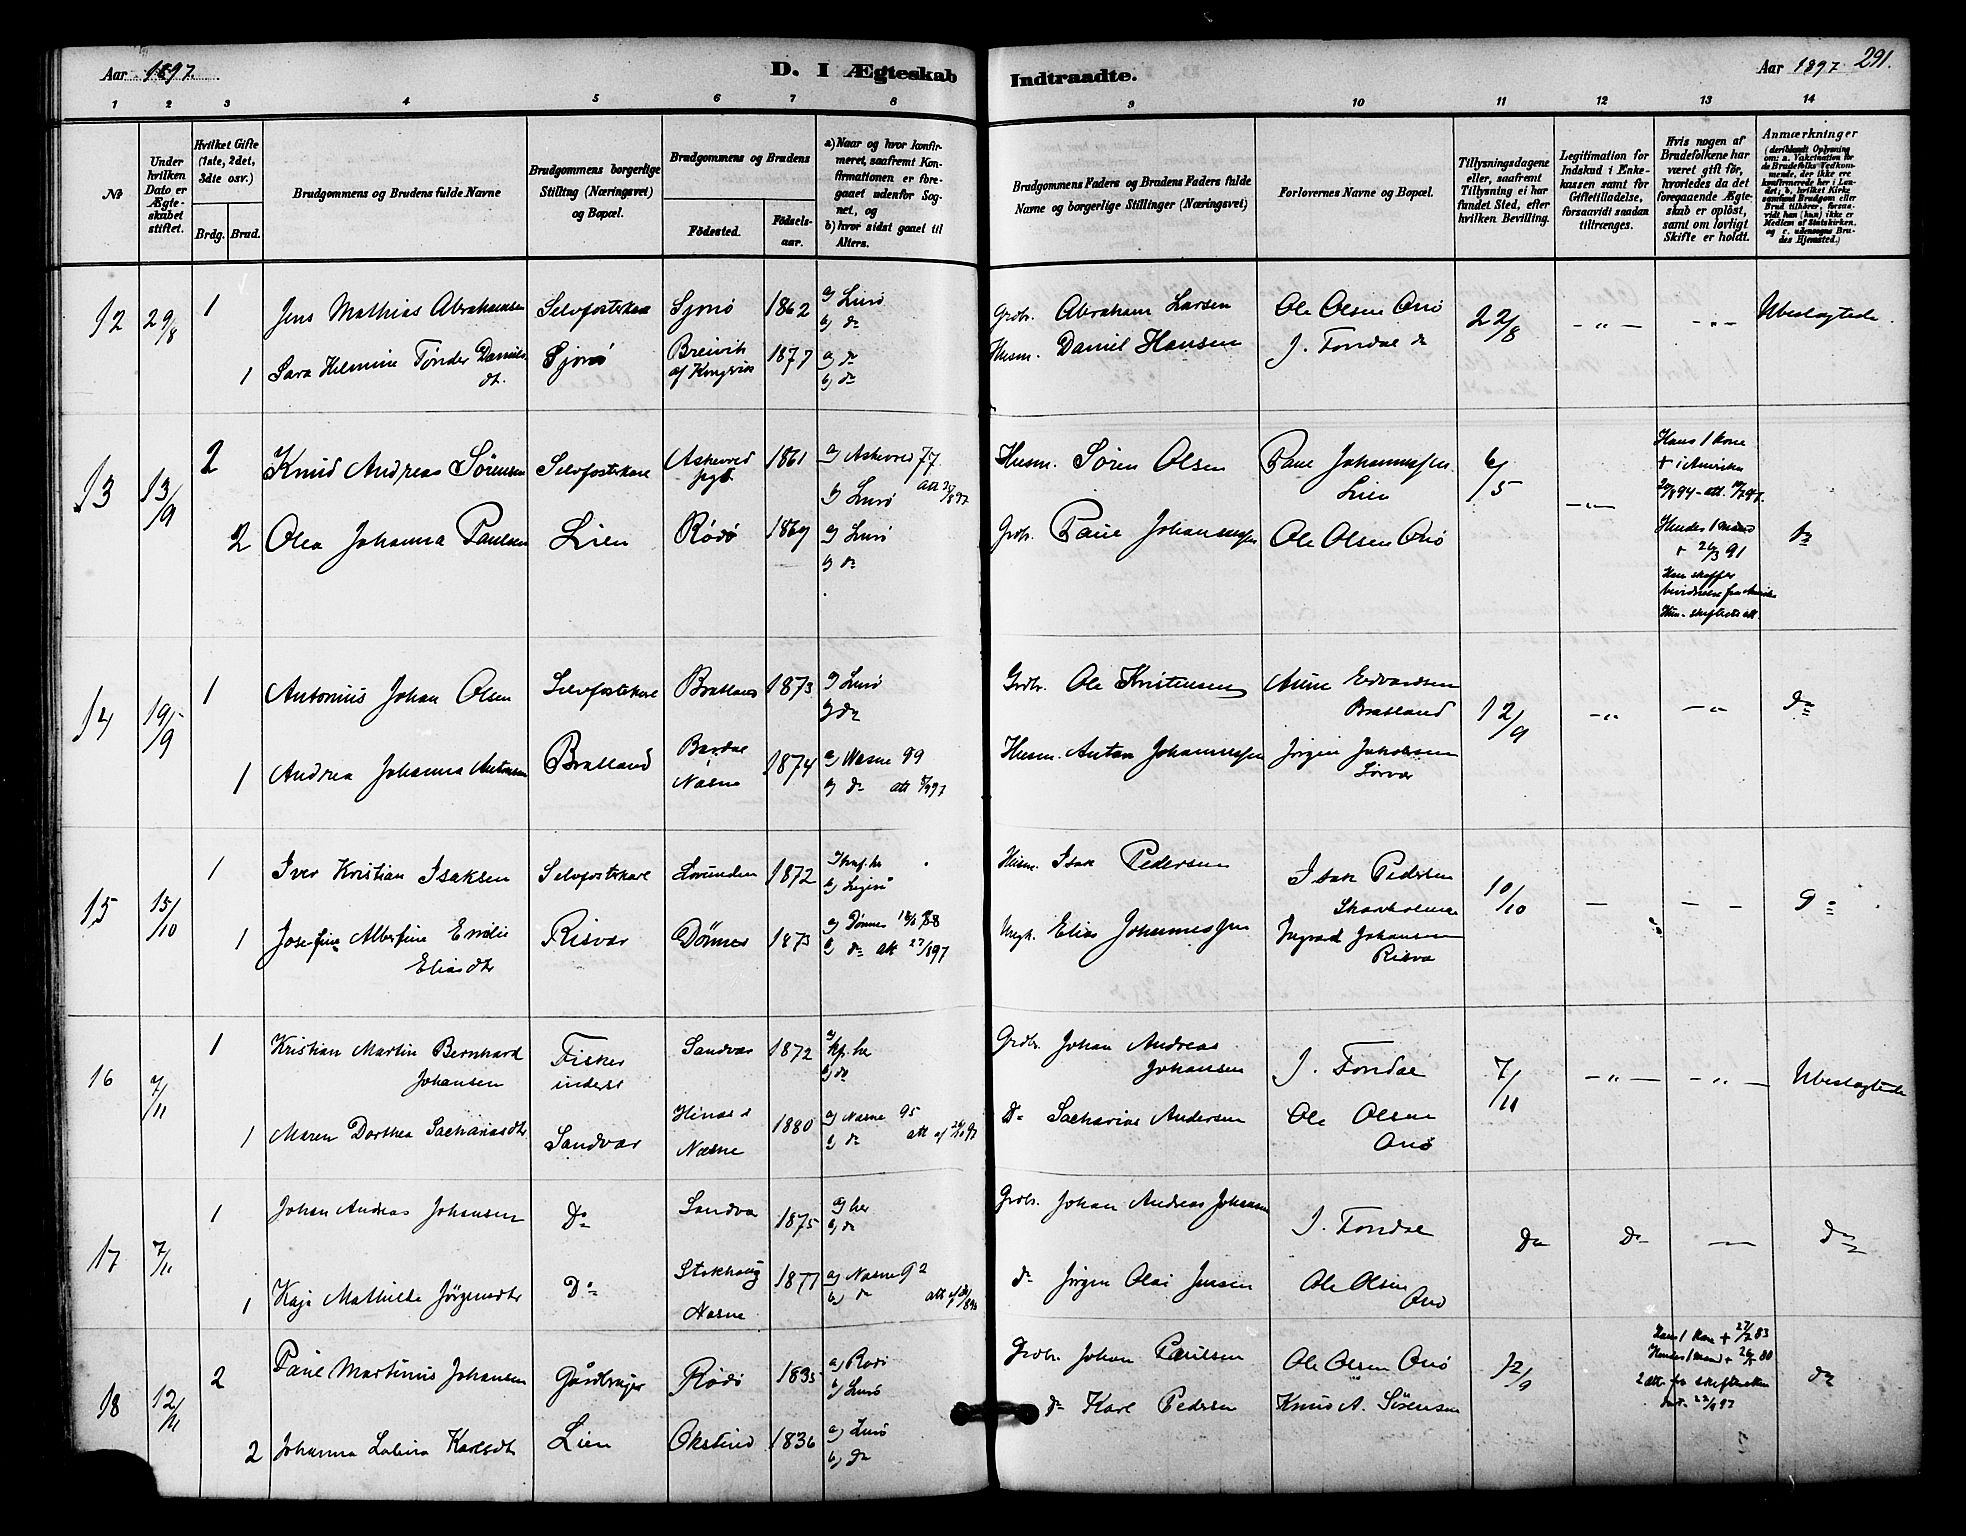 Aar 1897.
D. I Ægteskab
Indtraadte.
Aar 1897 291.
1 2 3 4 5 6 7 8 9 10 11 12 13 14
No
Under hvilken Dato er Ægteskabet stiftet.
Hvilket Gifte (1ste, 2det, 3dte osv.)
Brdg. Brud.
Brudgommens og Brudens fulde Navne
Brudgommens borgerlige Stilling (Næringsvei) og Bopæl.
Brudgommens og Brudens
Födested.
Födselsaar.
a) Naar og hvor konfirmeret, saafremt Konfirmationen er foregaaet udenfor Sognet, og
b) hvor sidst gaaet til Alters.
Brudgommens Faders og Brudens Faders fulde Navne og borgerlige Stillinger (Næringsvei)
Forlovernes Navne og Bopæl.
Tillysningsdagene eller, saafremt Tillysning ei har fundet Sted, efter hvilken Bevilling.
Legitimation for Indskud i Enkekassen samt for Giftetilladelse, forsaavidt saadan tiltrænges.
Hvis nogen af Brudefolkene har været gift för, hvorledes da det foregaaende Ægteskab er oplöst, samt om lovligt Skifte er holdt.
Anmærkninger (deriblandt Oplysning om: a. Vaksination for de Brudefolks Vedkommende, der ikke ere konfirmerede her i Landet; b. hvilket Kirkesamfund Brudgom eller Brud tilhörer, forsaavidt han (hun) ikke er Medlem af Statskirken, og c. udensogns Brudes Hjemsted.)
12 29/8 1 Jens Mathias Abrahamsen Selvfosterkar Sjonö 1862 a) Lurö b) do Grdbr. Abraham Larsen Ole Olsen Onö 22/8 -"- -"- Ubeslægtede.
1 Sara Helmine Tønder Daniels dt. Sjonö Breivik af Kongsvik 1877 a) do b) do Husm. Daniel Hansen J. Fondal do
13 13/9 2 Knud Andreas Sørensen Selvfosterkarl Askevold pgd 1861 a) Askevold 77 b) Lurö Husm. Søren Olsen Paul Johannessen Lien 6/5 -"- Hans 1 kone + i Amerika
2 Olea Johanna Paulsen Lien Rödö 1867 a) Lurö b) do Grdbr. Paul Johannessen Ole Olsen Onö Hendes 1 mand + 26/3 91 do
14 19/9 1 Antonius Johan Olsen Selvfosterkarl Bratland 1873 a) Lurö b) do Grdbr. Ole Kristensen Edvardsen Bratland 12/9 -"- -"- do
1 Andrea Johanna Antonsen Bratland Bardal Næsne 1874 a) Næsne 99 b) do Husm. Anton Johannessen Jørgen Jakobsen Sörvær
15 15/10 1 Iver Kristian Isaksen Selvfosterkarl Lovunden 1872 Husm. Isak Pedersen Isak Pedersen 10/10 - - - do
1 Josefine Albertine Emilie Eliasdtr Risvær Dønnes 1873 a) Dønnes b) do att 27/8 97 Elias Johannessen Ingvard Johansen Risvær
16 7/11 1 Kristian Martin Bernhard Johansen Fisker inderst Sandvær 1872 a) kf. her b) do Grdbr. Johan Andreas Johansen J. Fondal 7/11 -"- -"- Ubeslægtede
1 Maren Dorthea Sachariasdtr Sandvær Næsne 1880 a) Næsne 95 b) do Do Sacharias Andersen Ole Olsen Onö
17 7/11 1 Johan Andreas Johansen Do Sandvær 1875 a) her b) do Grdbr. Johan Andreas Johansen J. Fondal Do Do - do
1 Kaja Mathilde Jörgensdtr Do Stokhaug Næsne 1877 a) Næsne 92 b) do do Jørgen Olai Jensen Ole Olsen Onö
18 12/11 2 Paul Martinus Johansen Gårdbruger Rödö 1835 a) Rödö b) Lurö Grdbr. Johan Paulsen Ole Olsen Onö 12/9 Hans 1 kone + 27/2 83 Hendes 1 mand + 80 do
2 Johanna Lovina Karlsdtr Lien Okstind 1836 a) Lurö b) do do Karl Pedersen Knud A. Sörensen